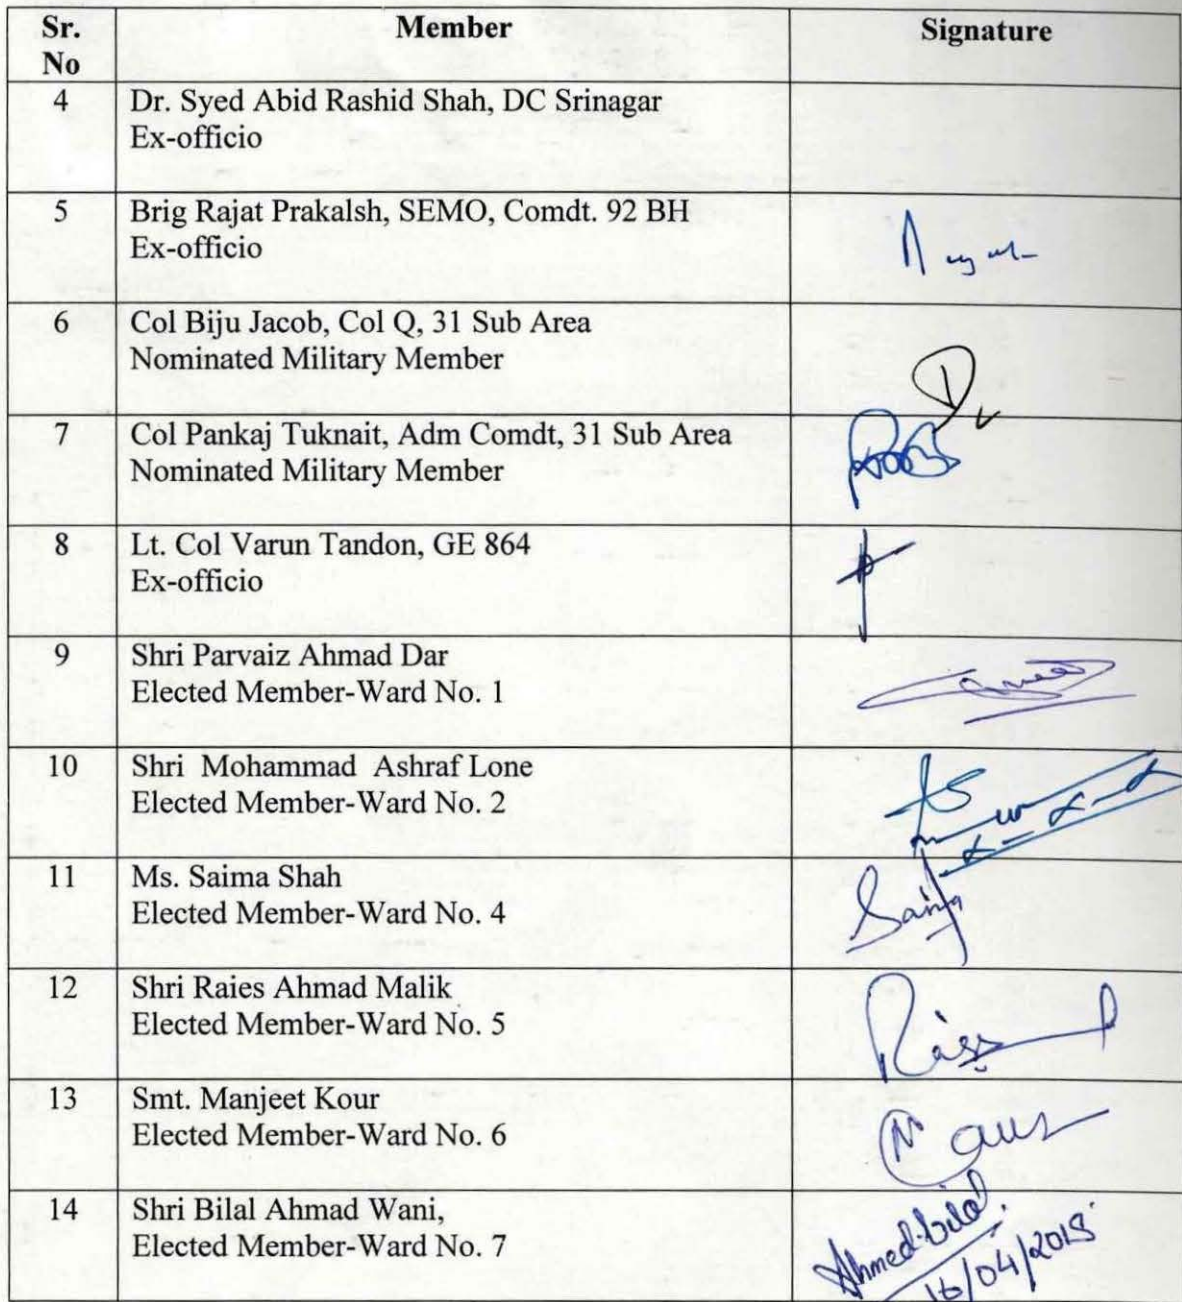 Sr. No Member Signature
4 Dr. Syed Abid Rashid Shah, DC Srinagar
Ex-officio
5 Brig Rajat Prakalsh, SEMO, Comdt. 92 BH
Ex-officio
6 Col Biju Jacob, Col Q, 31 Sub Area
Nominated Military Member
7 Col Pankaj Tuknait, Adm Comdt, 31 Sub Area
Nominated Military Member
8 Lt. Col Varun Tandon, GE 864
Ex-officio
9 Shri Parvaiz Ahmad Dar
Elected Member-Ward No. 1
10 Shri Mohammad Ashraf Lone
Elected Member-Ward No. 2
11 Ms. Saima Shah
Elected Member-Ward No. 4
12 Shri Raies Ahmad Malik
Elected Member-Ward No. 5
13 Smt. Manjeet Kour
Elected Member-Ward No. 6
14 Shri Bilal Ahmad Wani,
Elected Member-Ward No. 7
Ahmed bilal